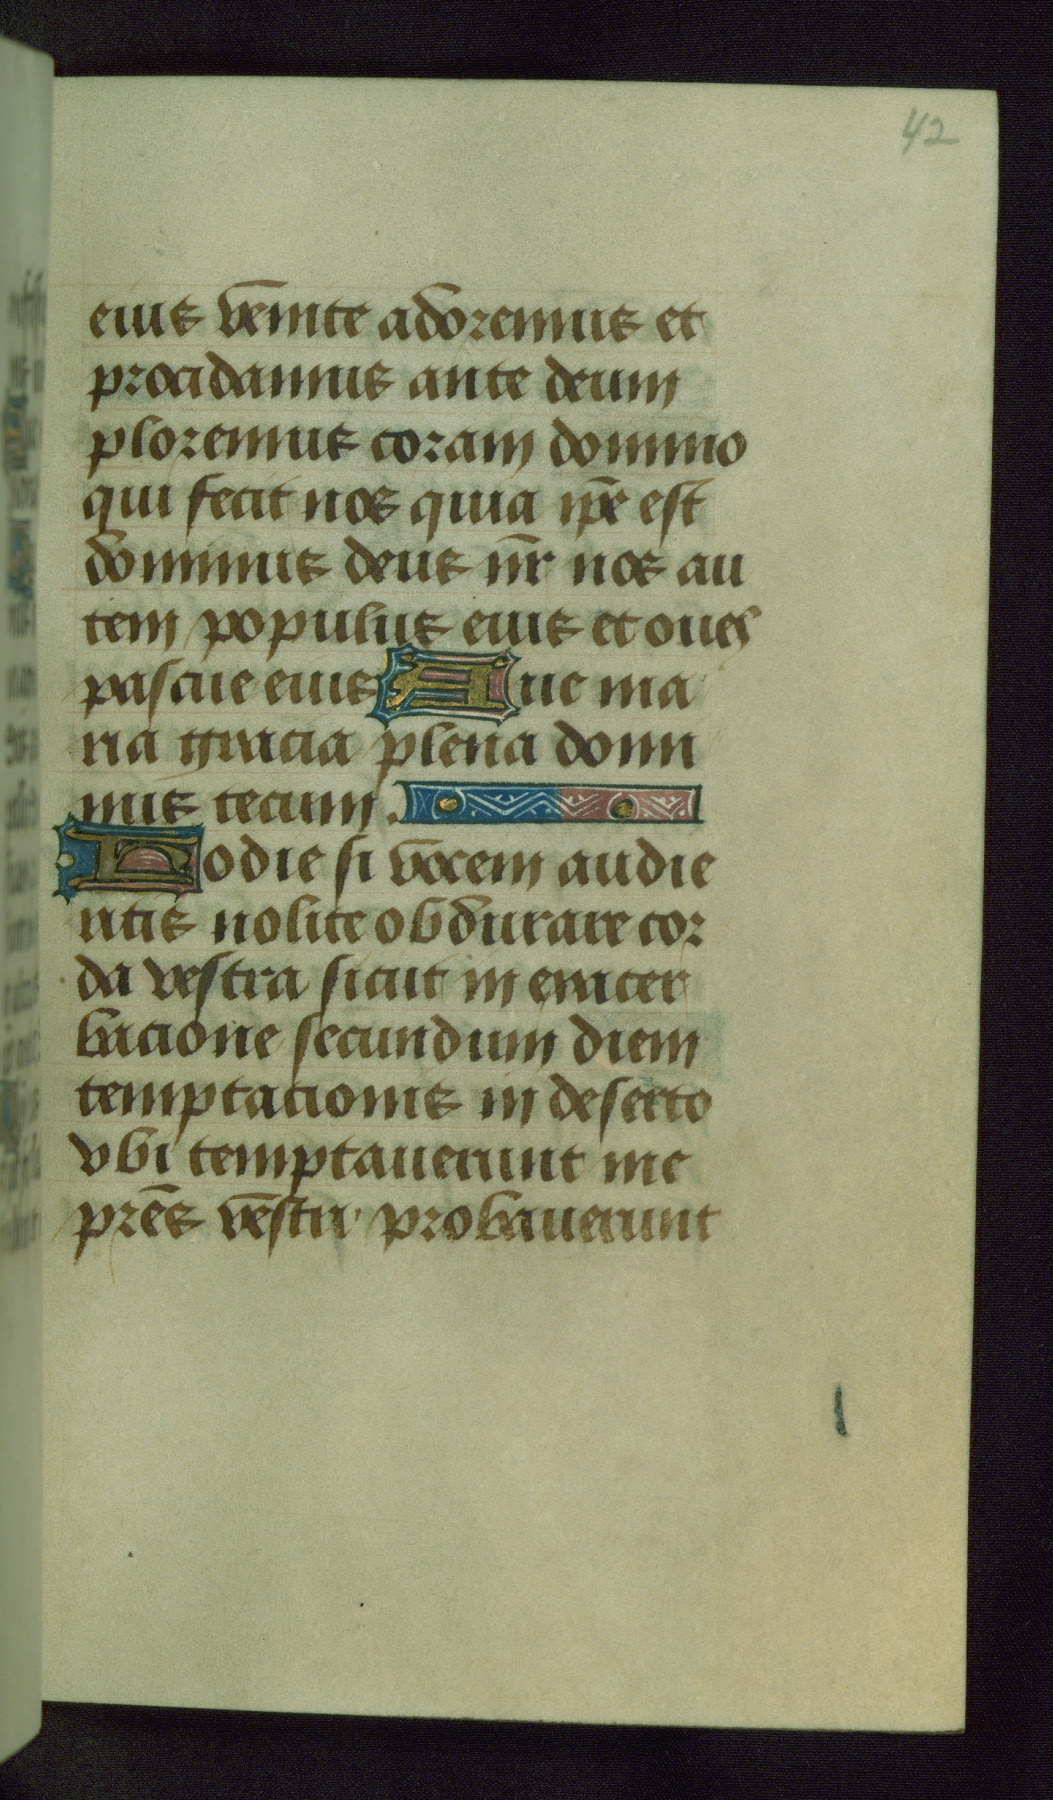 42
eius venite adoremus et
procidamus ante deum
ploremus coram domino
qui fecit nos quia ip̄e est
dominus deus nr̄ nos au
tem populus eius et oues
pascue eius Aue ma
ria gracia plena domi
nus tecum.
Hodie si vocem audie
ritis nolite obdurare cor
da vestra sicut in exacer
bacione secundum diem
temptacionis in deserto
vbi temptauerunt me
prēs vēstri probauerunt